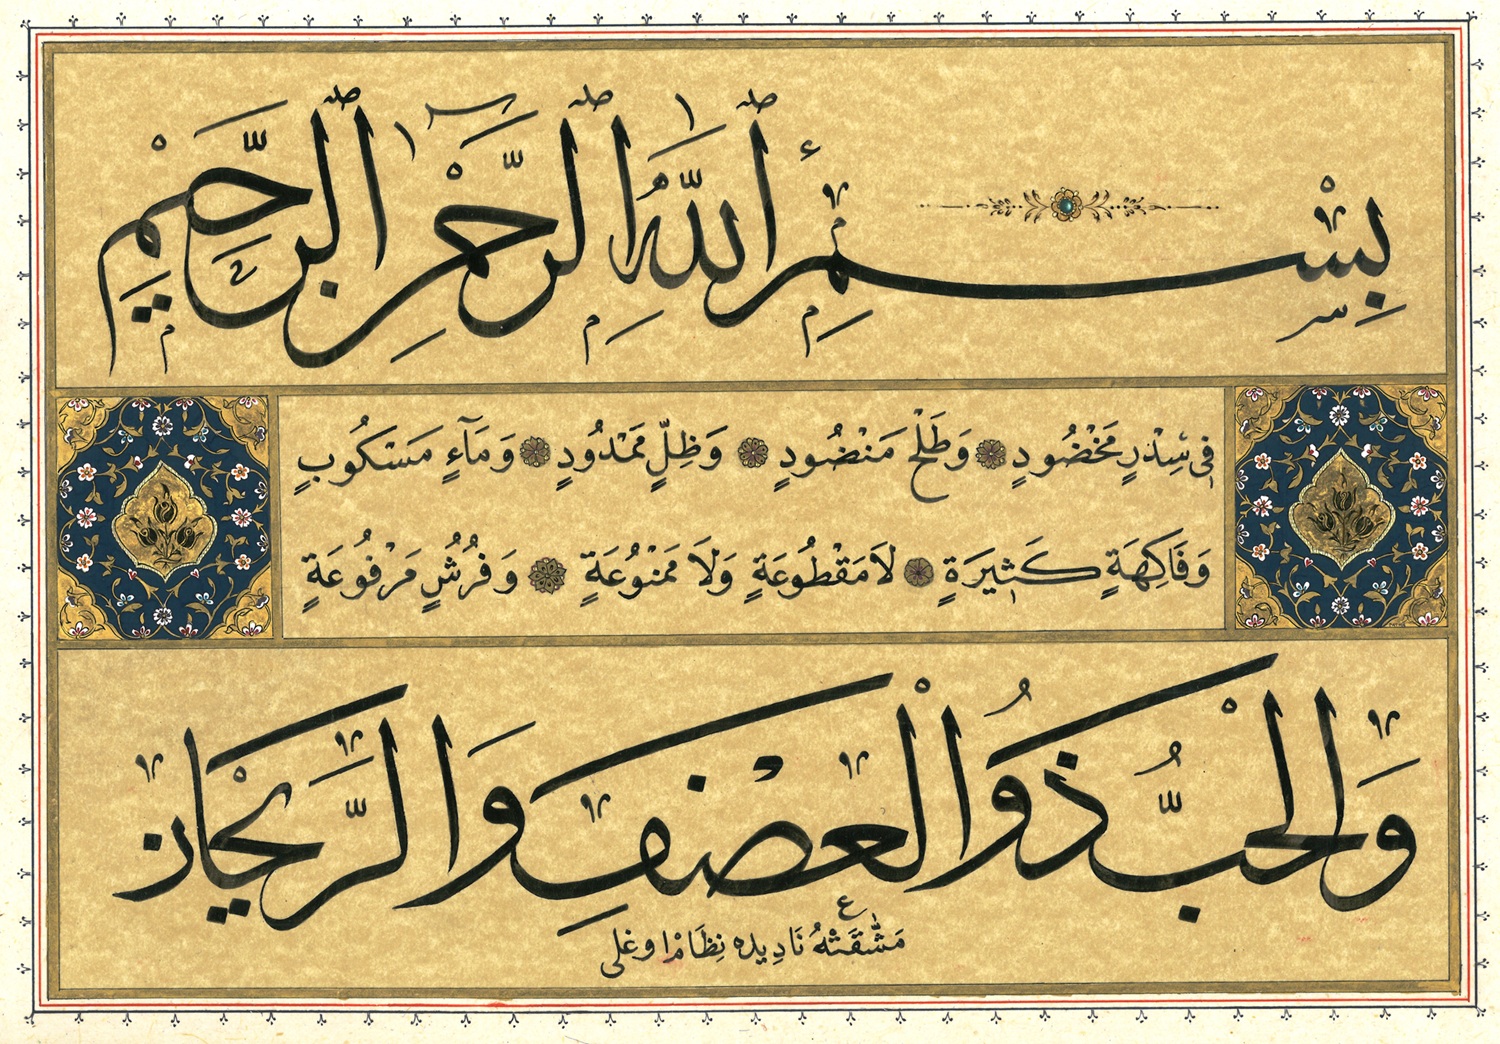 بِسْمِ ٱللَّهِ ٱلرَّحْمٰنِ ٱلرَّحِيمِ
فِي سِدْرٍ مَخْضُودٍ وَطَلْحٍ مَنْضُودٍ وَظِلٍّ مَمْدُودٍ وَمَآءٍ مَسْكُوبٍ
وَفَاكِهَةٍ كَثِيرَةٍ لَا مَقْطُوعَةٍ وَلَا مَمْنُوعَةٍ وَفُرُشٍ مَرْفُوعَةٍ
وَالْحَبُّ ذُو الْعَصْفِ وَالرَّيْحَانُ
مَشَّقَتْهُ نَادِيده نِظَام اوغلى